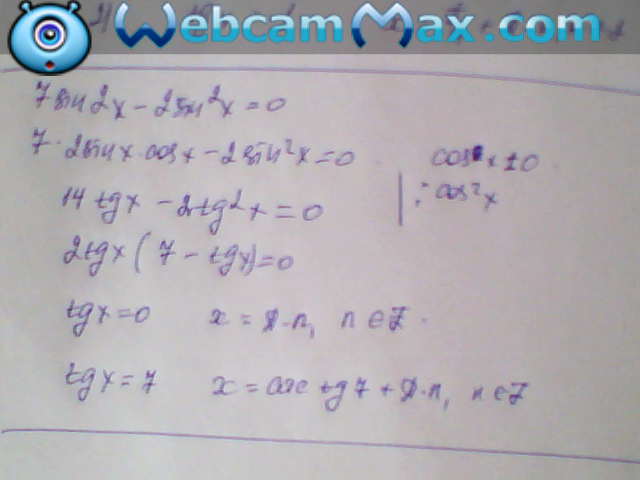 WebcamMax.com
7 sin 2x − 2 sin²x = 0
7 · 2 sin x cos x − 2 sin²x = 0 cos x ≠ 0
14 tg x − 2 tg²x = 0 | : cos²x
2 tg x ( 7 − tg x) = 0
tg x = 0 x = π·n, n ∈ Z.
tg x = 7 x = arc tg 7 + π·n, n ∈ Z